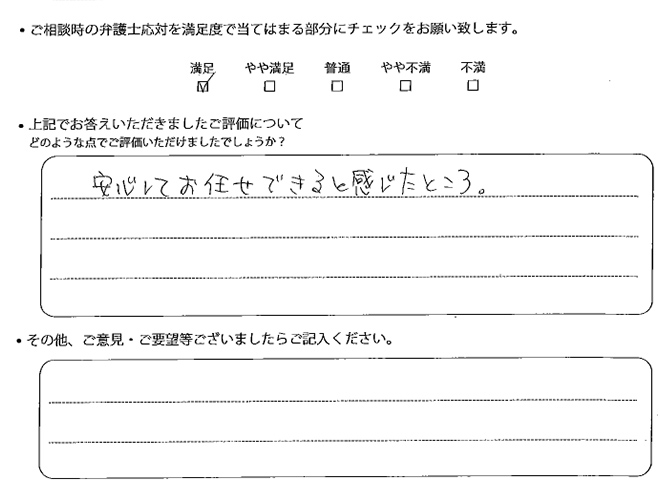 ・ご相談時の弁護士応対を満足度で当てはまる部分にチェックをお願い致します。
満足 やや満足 普通 やや不満 不満
☑ □ □ □ □
・上記でお答えいただきましたご評価について
どのような点でご評価いただけましたでしょうか?
安心してお任せできると感じたところ。
・その他、ご意見・ご要望等ございましたらご記入ください。